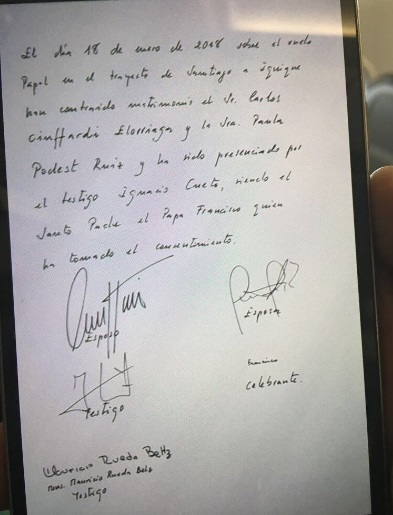 El día 18 de enero de 2018 sobre el vuelo
Papal en el trayecto de Santiago a Iquique
han contraído matrimonio el Sr. Carlos
Ciuffardi Elorriaga y la Sra. Paula
Podest Ruiz y ha sido presenciado por
el testigo Ignacio Cueto, siendo el
Santo Padre el Papa Francisco quien
ha tomado el consentimiento.
Esposo
Esposa
Testigo
Francisco
Celebrante.
Mauricio Rueda Beltz
Mons. Mauricio Rueda Beltz
Testigo